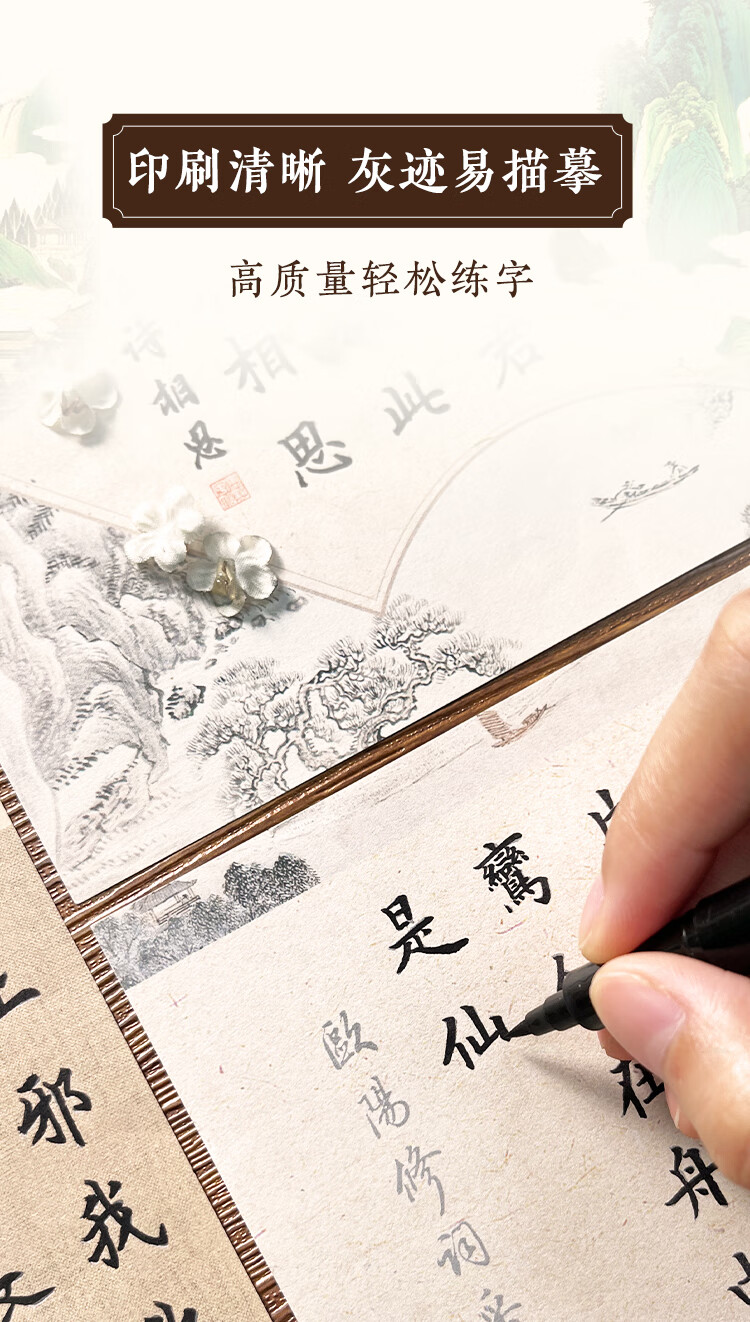 印刷清晰 灰迹易描摹
高质量轻松练字
君
此
相思
诗相思
鸞
在舟
是仙
歐陽修詞
邪我